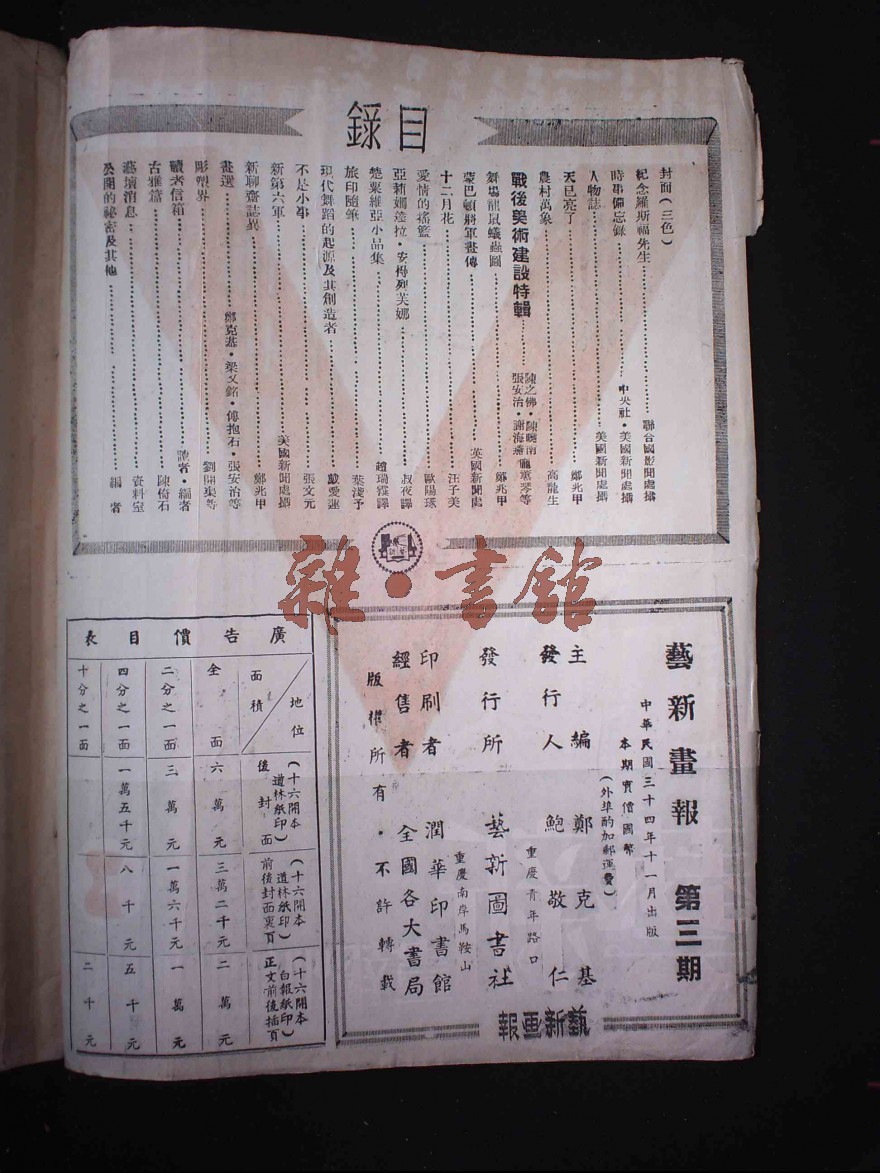 目錄
封面（三色）
紀念羅斯福先生 聯合國影聞處攝
時事備忘錄 中央社·美國新聞處攝
人物誌 美國新聞處攝
天已亮了 鄭兆甲
農村萬象 高龍生
戰後美術建設特輯 陳之佛·陳曉南·龐薰琴等 張安治·謝海燕
舞場龍鼠蟻蟲圖 鄭兆甲
蒙巴頓將軍畫傳 英國新聞處
十二月花 汪子美
愛情的搖籃 歐陽琢
亞莉妲達拉·安得列芙娜 叔夜譯
楚粟維亞小品集 趙瑞霟譯
旅印隨筆 葉淺予
現代舞蹈的起源及其創造者 戴愛蓮
不是小事 張文元
新第六軍 美國新聞處攝
新聊齋誌異 鄭兆甲
畫選 鄭克基·梁又銘·傅抱石·張安治等
彫塑界 劉開渠等
讀者信箱 讀者·編者
古雅篇 陳倚石
藝壇消息 資料室
公開的秘密及其他 編者
雜·書館
藝新畫報 第三期
中華民國三十四年十一月出版
本期實價國幣
（外埠酌加郵運費）
主編 鄭克基
發行人 鮑敬仁
重慶青年路口
發行所 藝新圖書社
重慶南岸馬鞍山
印刷者 潤華印書館
經售者 全國各大書局
版權所有·不許轉載
藝新画報
廣告價目表
地位
面積
全面
二分之一面
四分之一面
十分之一面
後封面
（十六開本道林紙印）
六萬元
三萬元
一萬五千元
前後封面裏頁
（十六開本道林紙印）
三萬二千元
一萬六千元
八千元
正文前後插頁
（十六開本白報紙印）
二萬元
一萬元
五千元
二千元